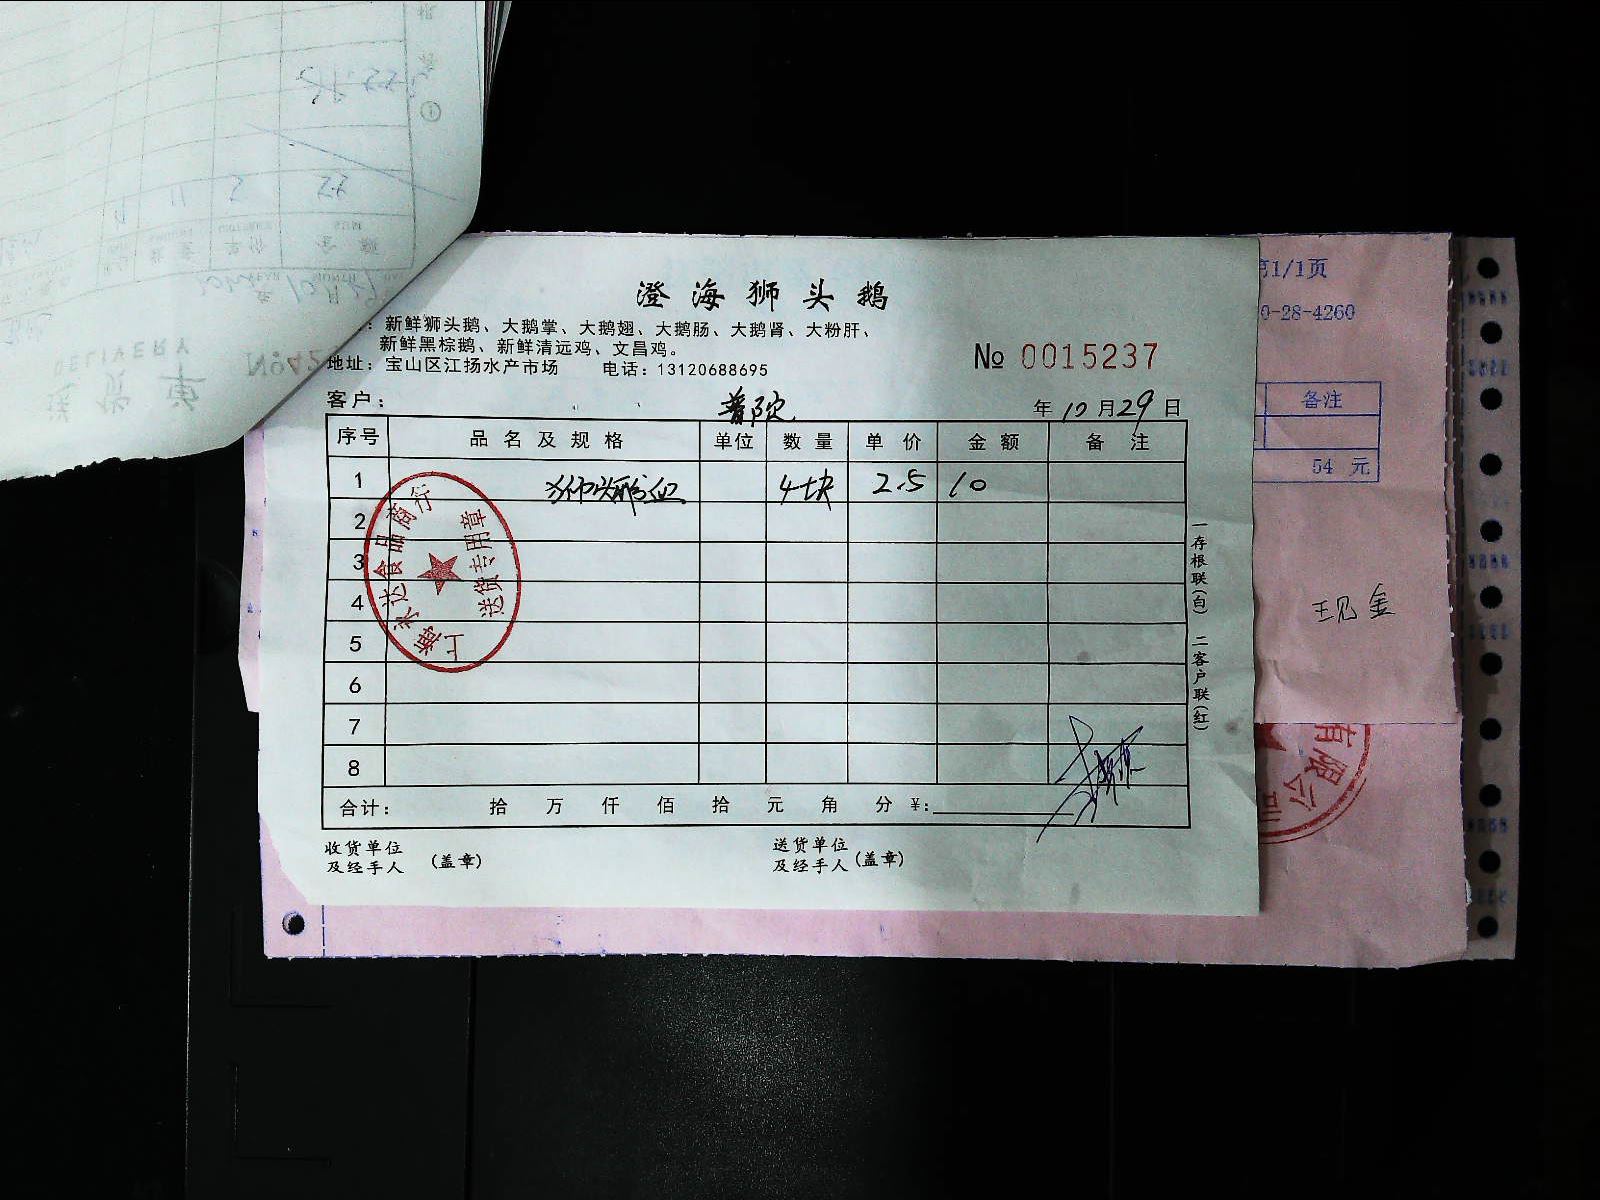 澄海狮头鹅
新鲜狮头鹅、大鹅掌、大鹅翅、大鹅肠、大鹅肾、大粉肝、
新鲜黑棕鹅、新鲜清远鸡、文昌鸡。
地址：宝山区江扬水产市场 电话：13120688695
№ 0015237
客户： 普陀 年 10 月 29 日
序号 品名及规格 单位 数量 单价 金额 备注
1 狮头鹅血 4块 2.5 10
2
3
4
5
6
7
8
合计： 拾 万 仟 佰 拾 元 角 分 ¥:
收货单位
及经手人 (盖章)
送货单位
及经手人 (盖章)
一存根联(白) 二客户联(红)
上海永达食品商行
送货专用章
第1/1页
0-28-4260
备注
54 元
现金
有限公司
送货单
DELIVERY
№42